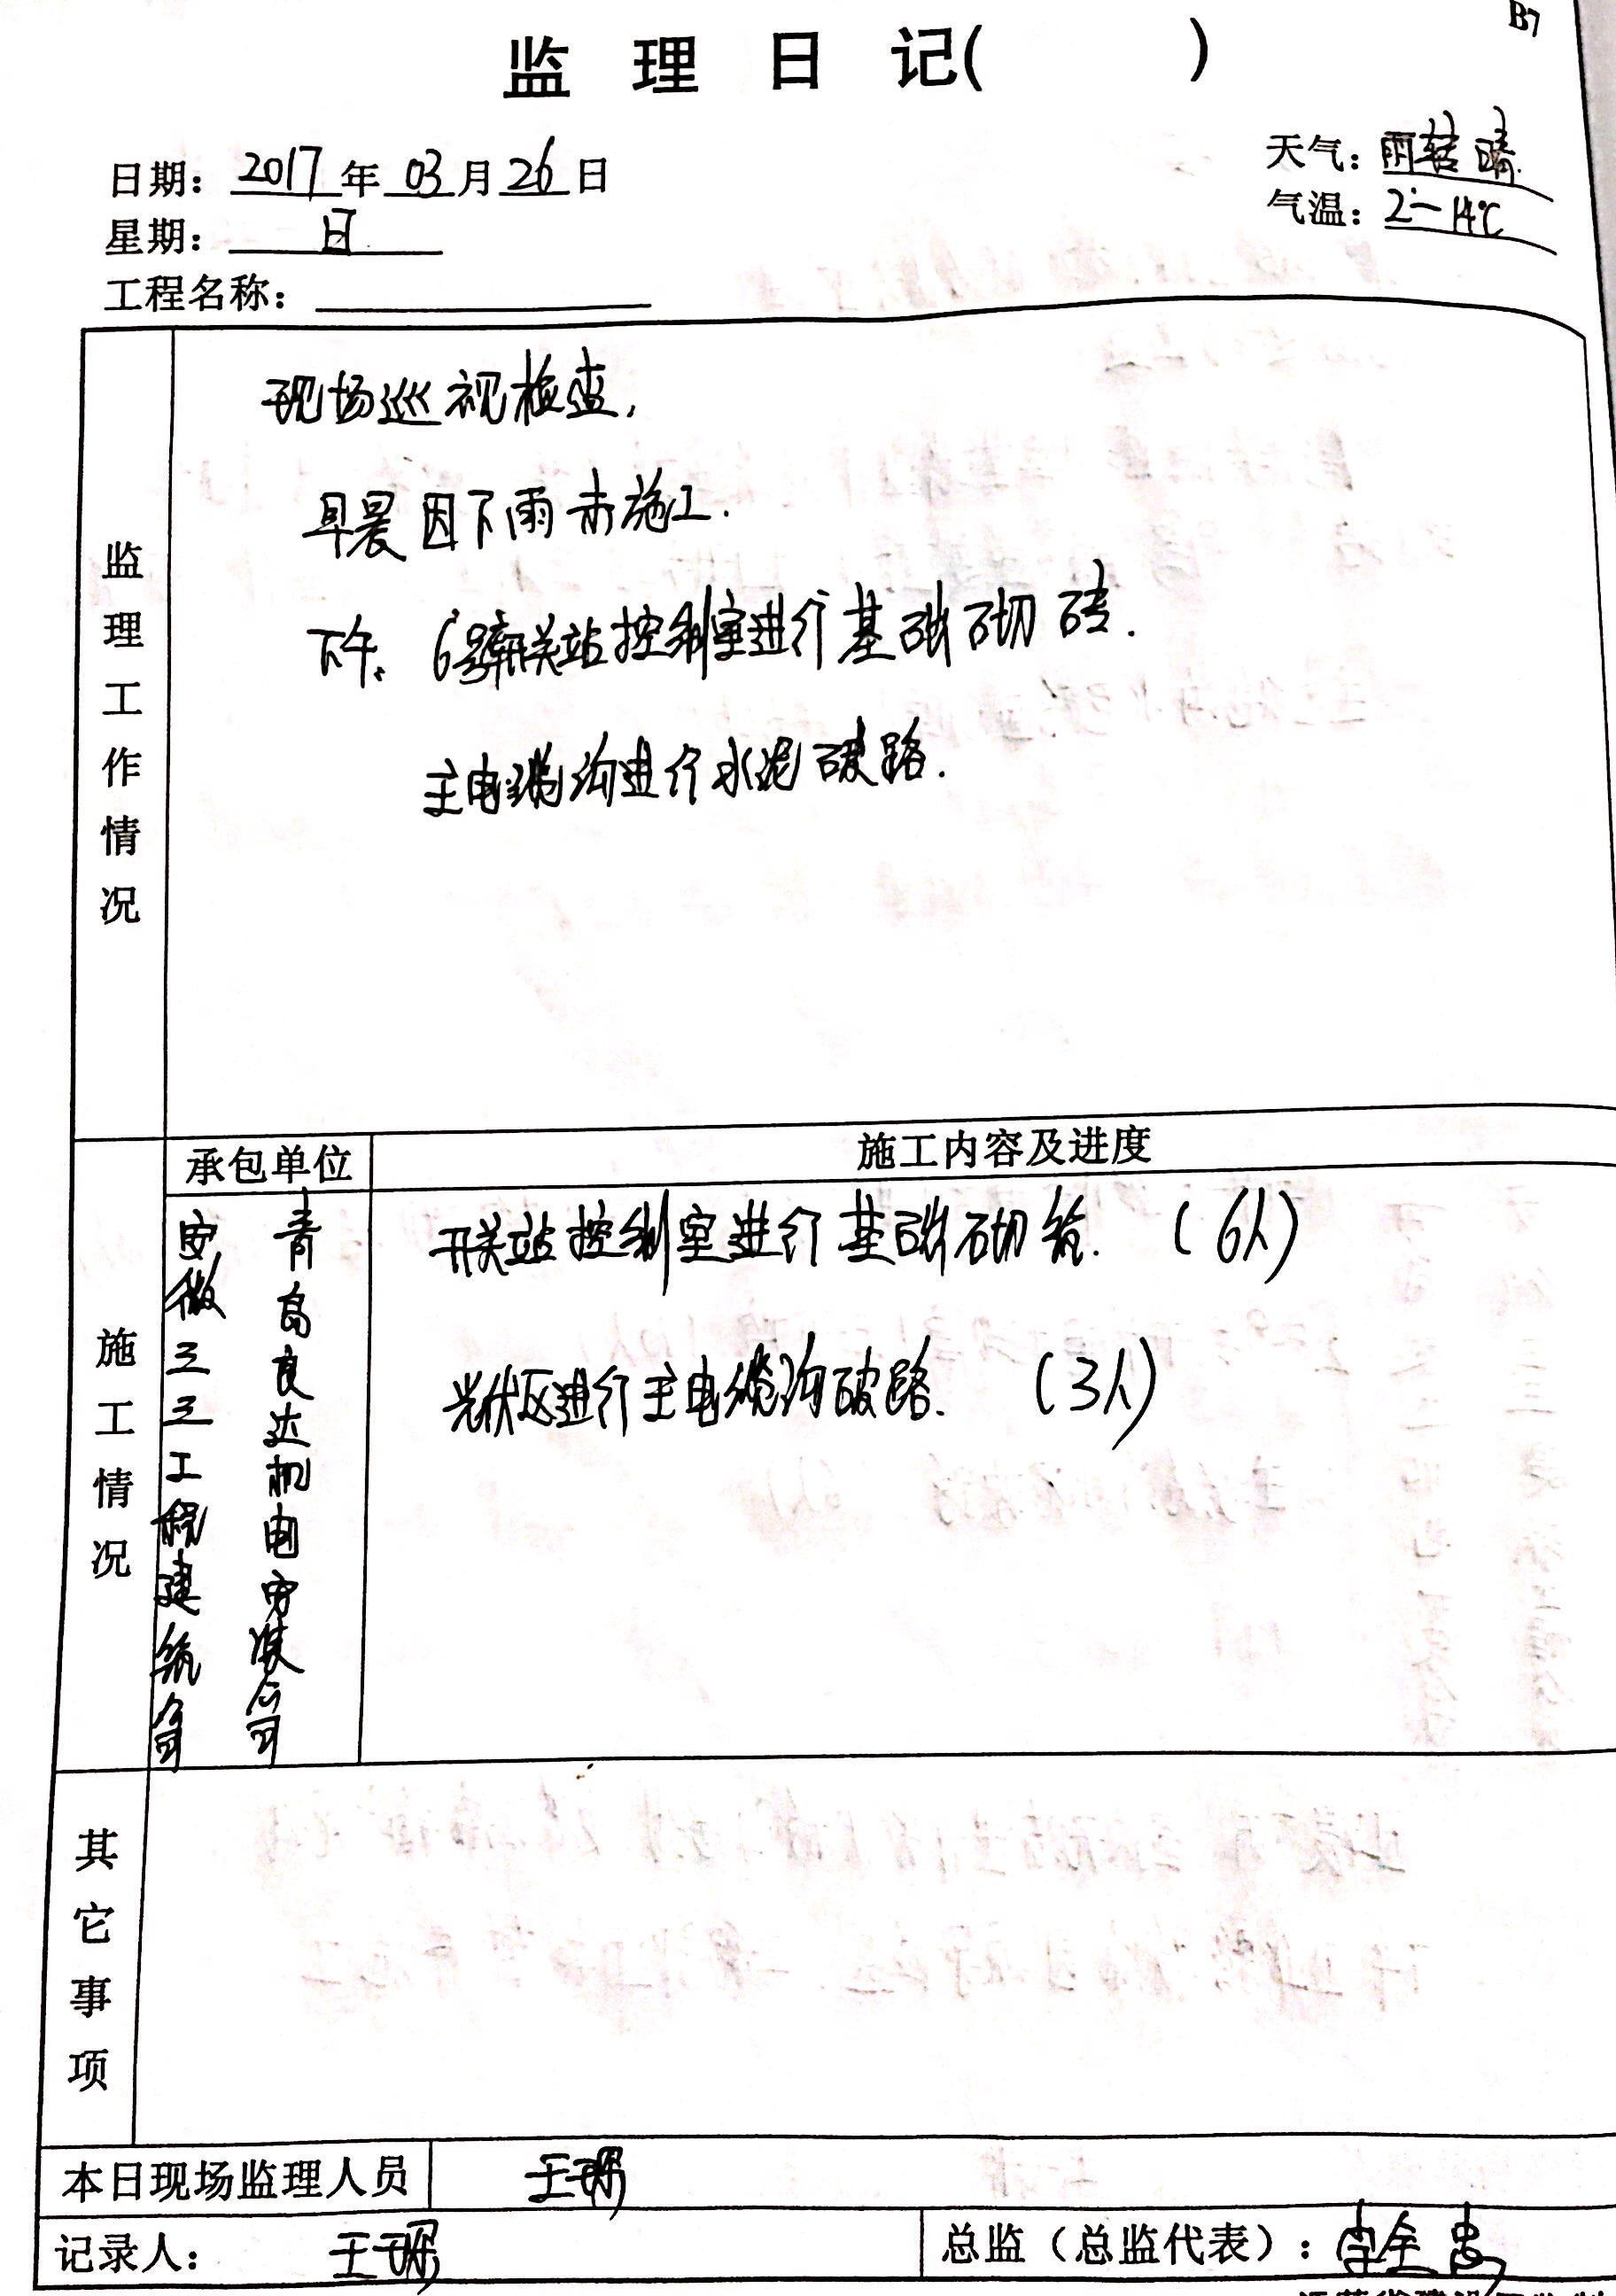 B7
监理日记(　　)
日期：2017年03月26日
天气：雨转晴
星期：日
气温：2°—14℃
工程名称：
监理工作情况
现场巡视检查,
早晨因下雨未施工.
下午: 6号开关站控制室进行基础砌砖.
主电缆沟进行水泥破路.
施工情况
承包单位
施工内容及进度
安徽三三工程建筑公司
青岛良达机电安装公司
开关站控制室进行基础砌筑. (6人)
光伏区进行主电缆沟破路. (3人)
其它事项
本日现场监理人员
记录人：
总监（总监代表）：李全忠